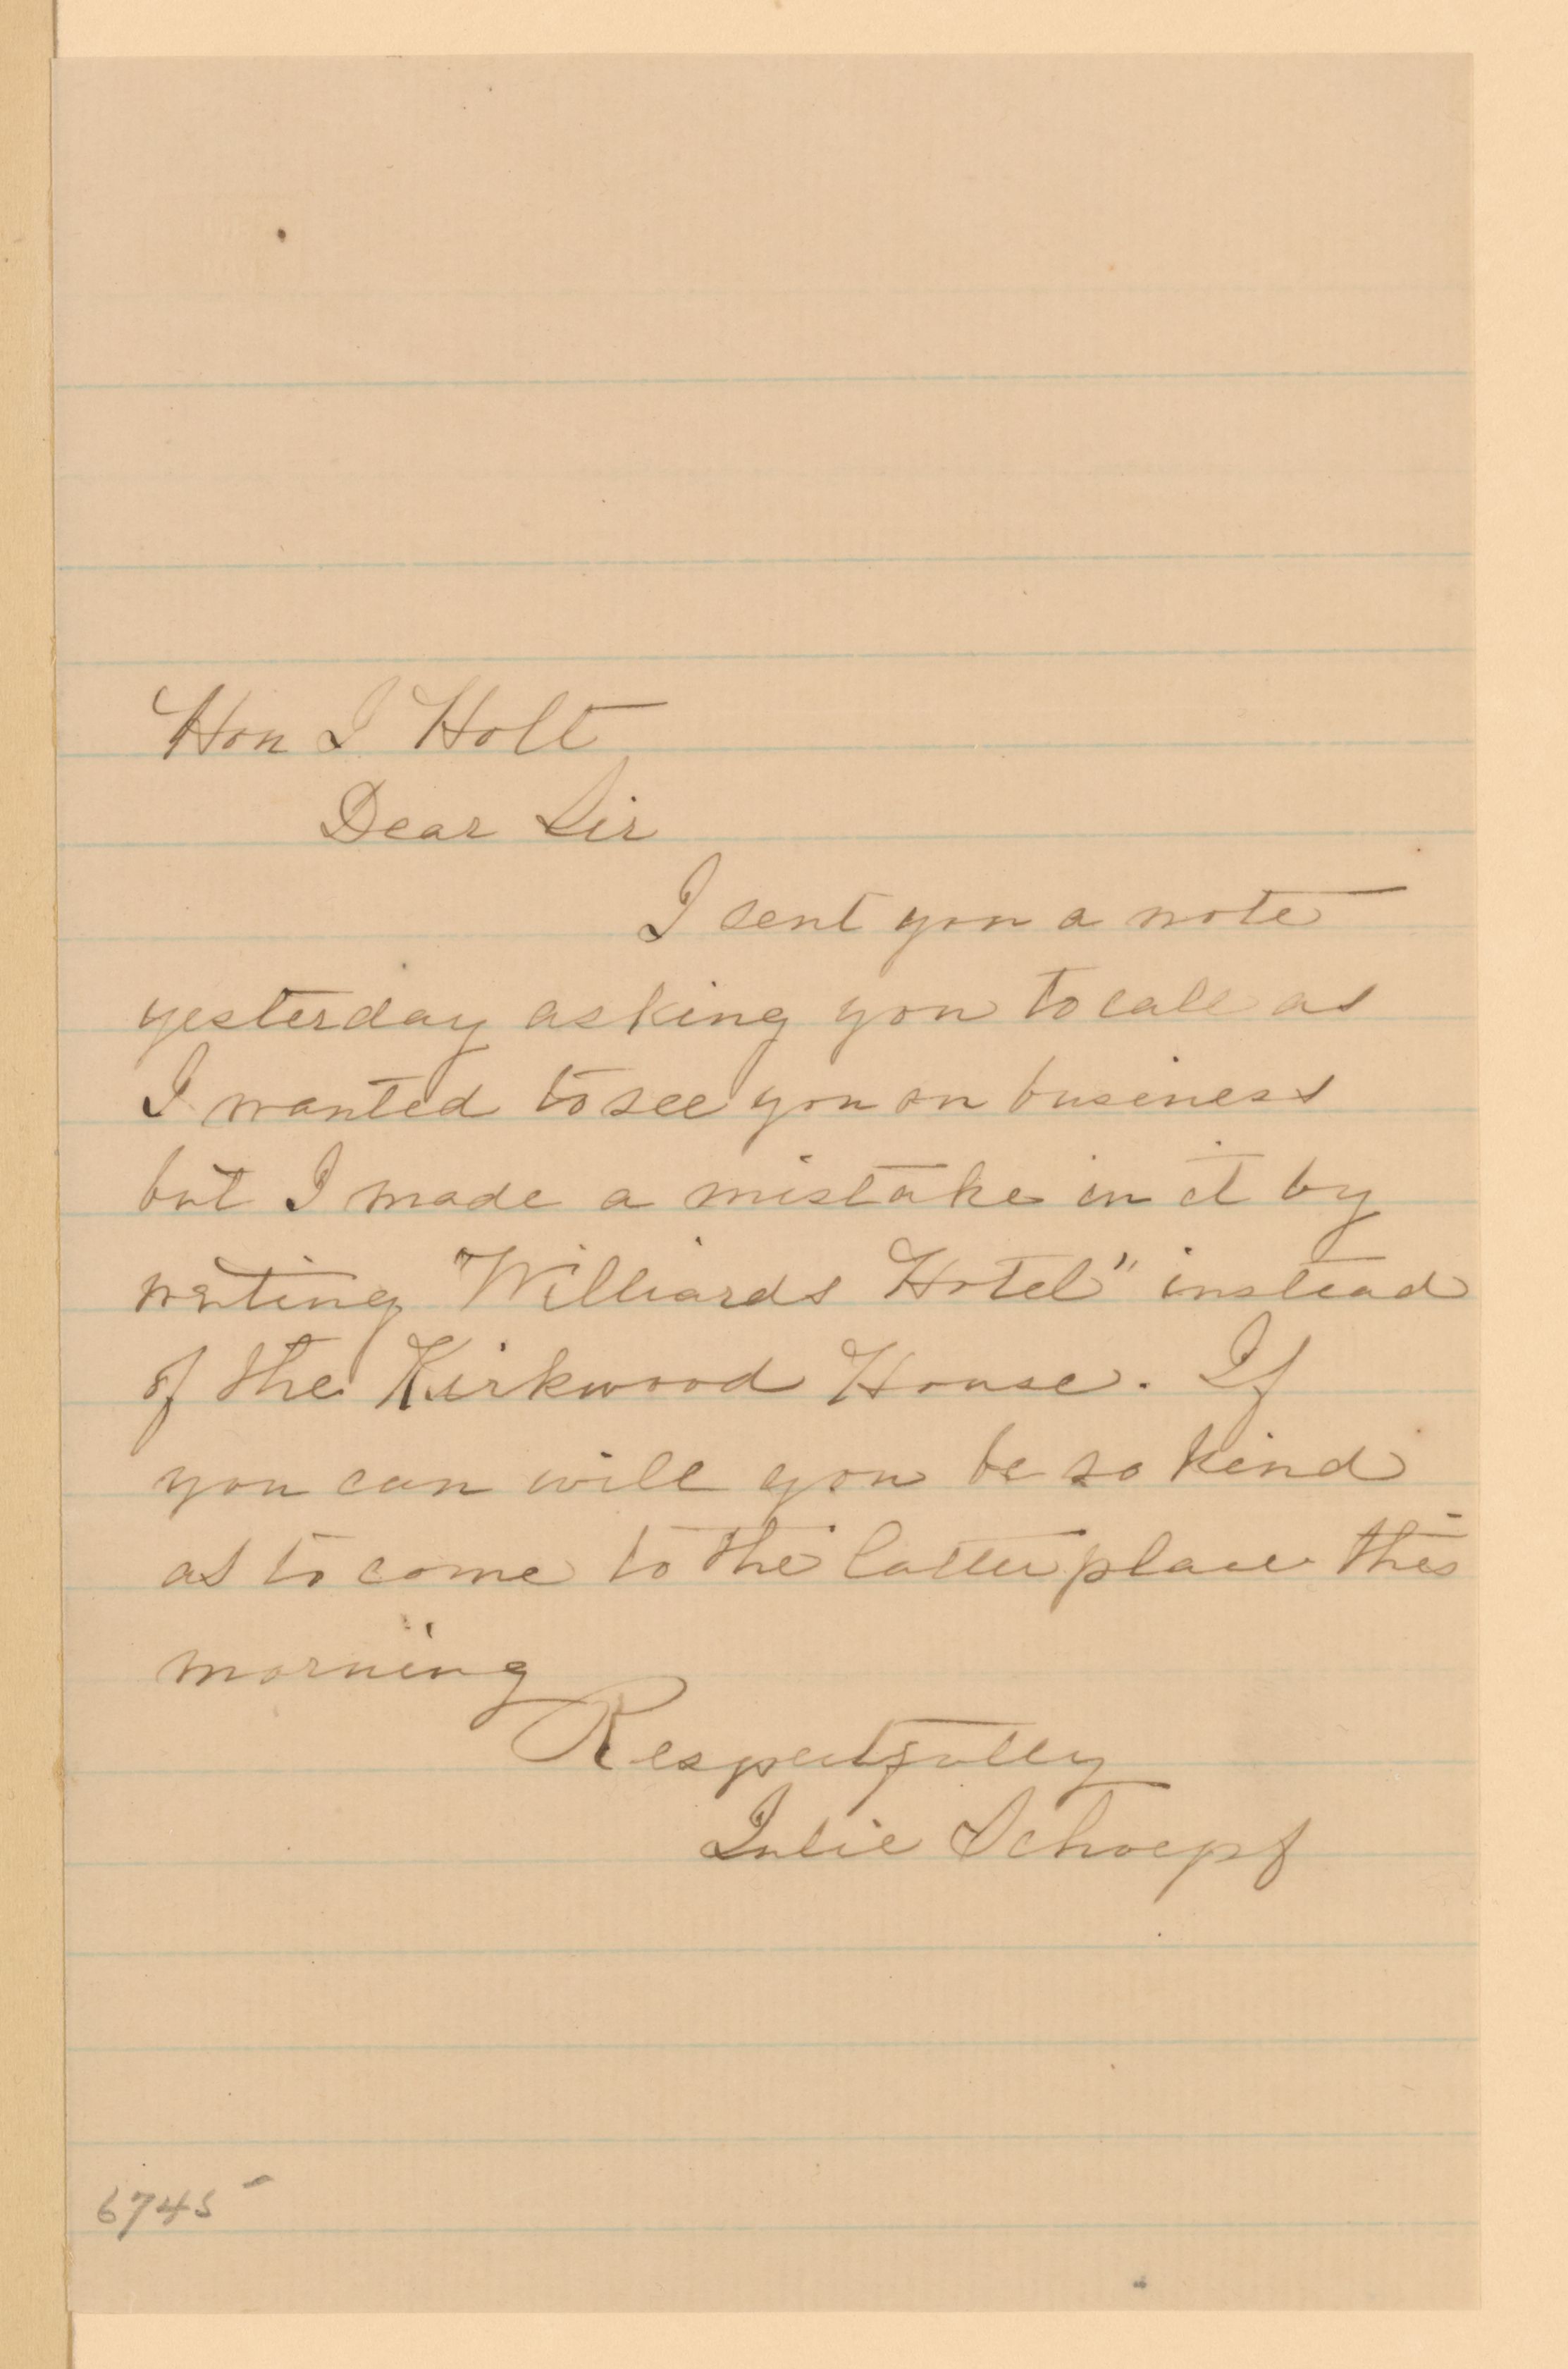 Hon J Holt
Dear Sir
I sent you a note
yesterday asking you to call as
I wanted to see you on business
but I made a mistake in it by
writing "Williards Hotel" instead
of the Kirkwood House. If
you can will you be so kind
as to come to the latter place this
morning
Respectfully
Julie Schoepf
6745